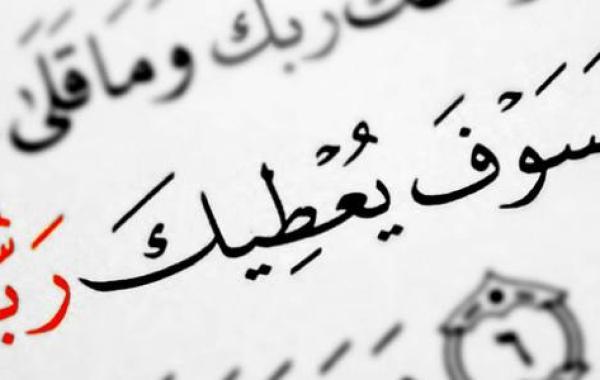 ربك وما قلى
سَوْفَ يُعْطِيكَ رَبّ
٦